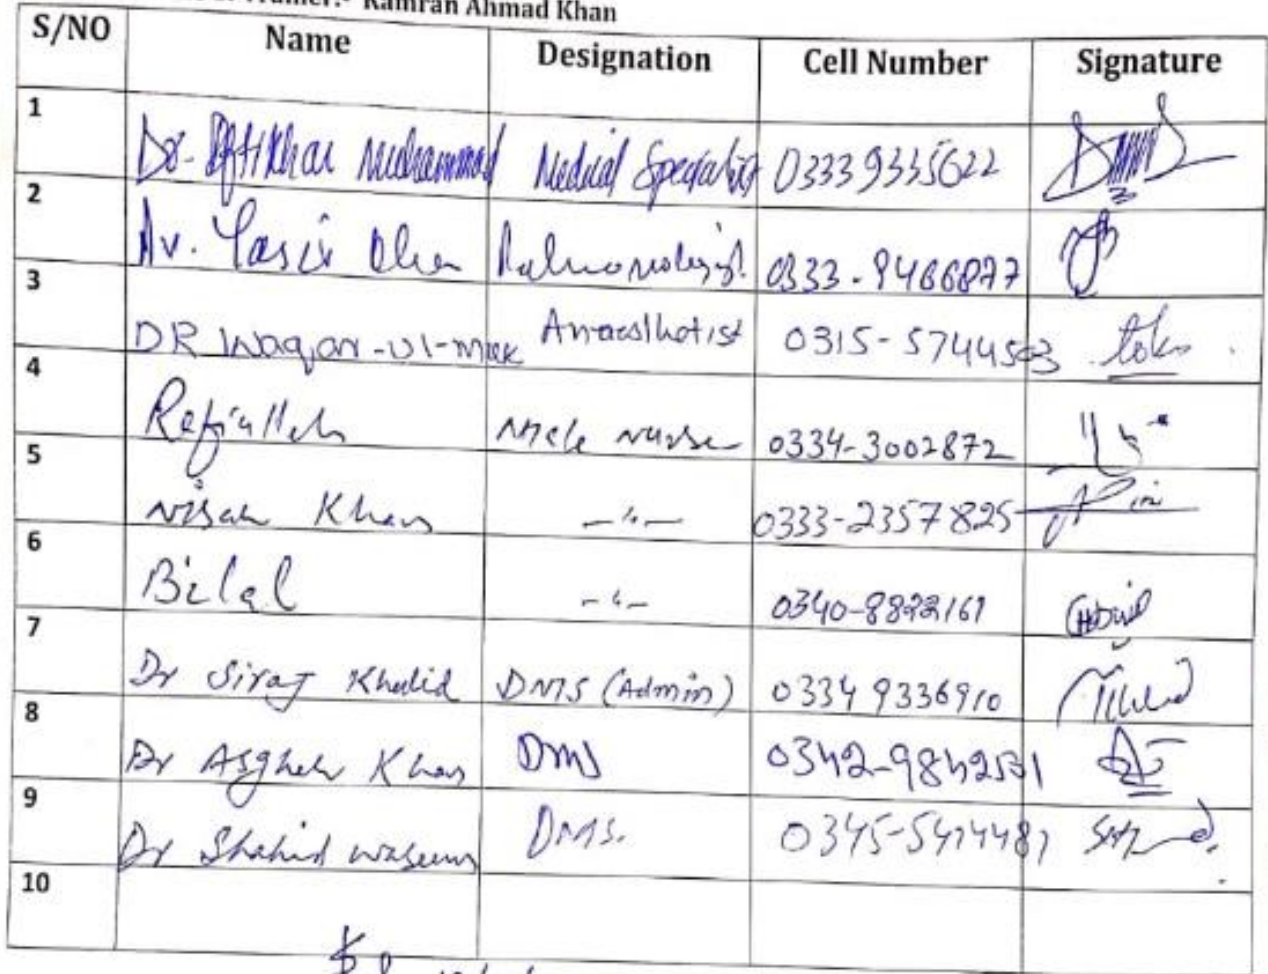 Trainer:- Kamran Ahmad Khan
S/NO Name Designation Cell Number Signature
1 Dr. Iftikhar Muhammad Medical Specialist 03339335622
2 Dr. Yasir Pulmonologist 0333-9466877
3 DR Waqar-ul- Anaesthetist 0315-5744503
4 Rafiullah Male Nurse 0334-3002872
5 Nisar Khan -"- 0333-2357825
6 Bilal -"- 0340-8822161
7 Dr Siraj Khalid DMS (Admin) 0334 9336910
8 Dr Asghar Khan DMS 0342-9842531
9 Dr Shahid Waseem DMS. 0345-5414481
10